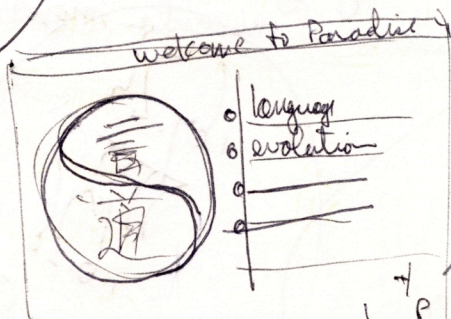 welcome to Paradise
language
evolution
道